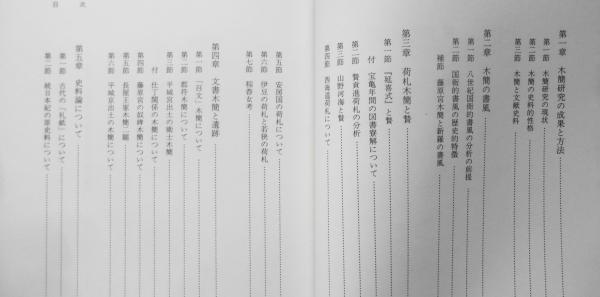 目次
第一章 木簡研究の成果と方法
第一節 木簡研究の現状
第二節 木簡の史料的性格
第三節 木簡と文献史料
第二章 木簡の書風
第一節 八世紀国衙的書風の分析の前提
第二節 国衙的書風の歴史的特徴
補節 藤原宮木簡と新羅の書風
第三章 荷札木簡と贄
第一節 『延喜式』と贄
付 宝亀年間の図書寮解について
第二節 贄貢進荷札の分析
第三節 山野河海と贄
第四節 西海道荷札について
第五節 安房国の荷札について
第六節 伊豆の荷札と若狭の荷札
第七節 稲春女考
第四章 文書木簡と遺跡
第一節 「召文」木簡について
第二節 郡符木簡について
第三節 平城宮出土の衛士木簡
付 仕丁関係の木簡について
第四節 藤原宮の奴婢木簡について
第五節 長屋王家木簡二題
第六節 平城京出土の木簡について
第五章 史料論について
第一節 古代の「礼紙」について
第二節 続日本紀の原史料について